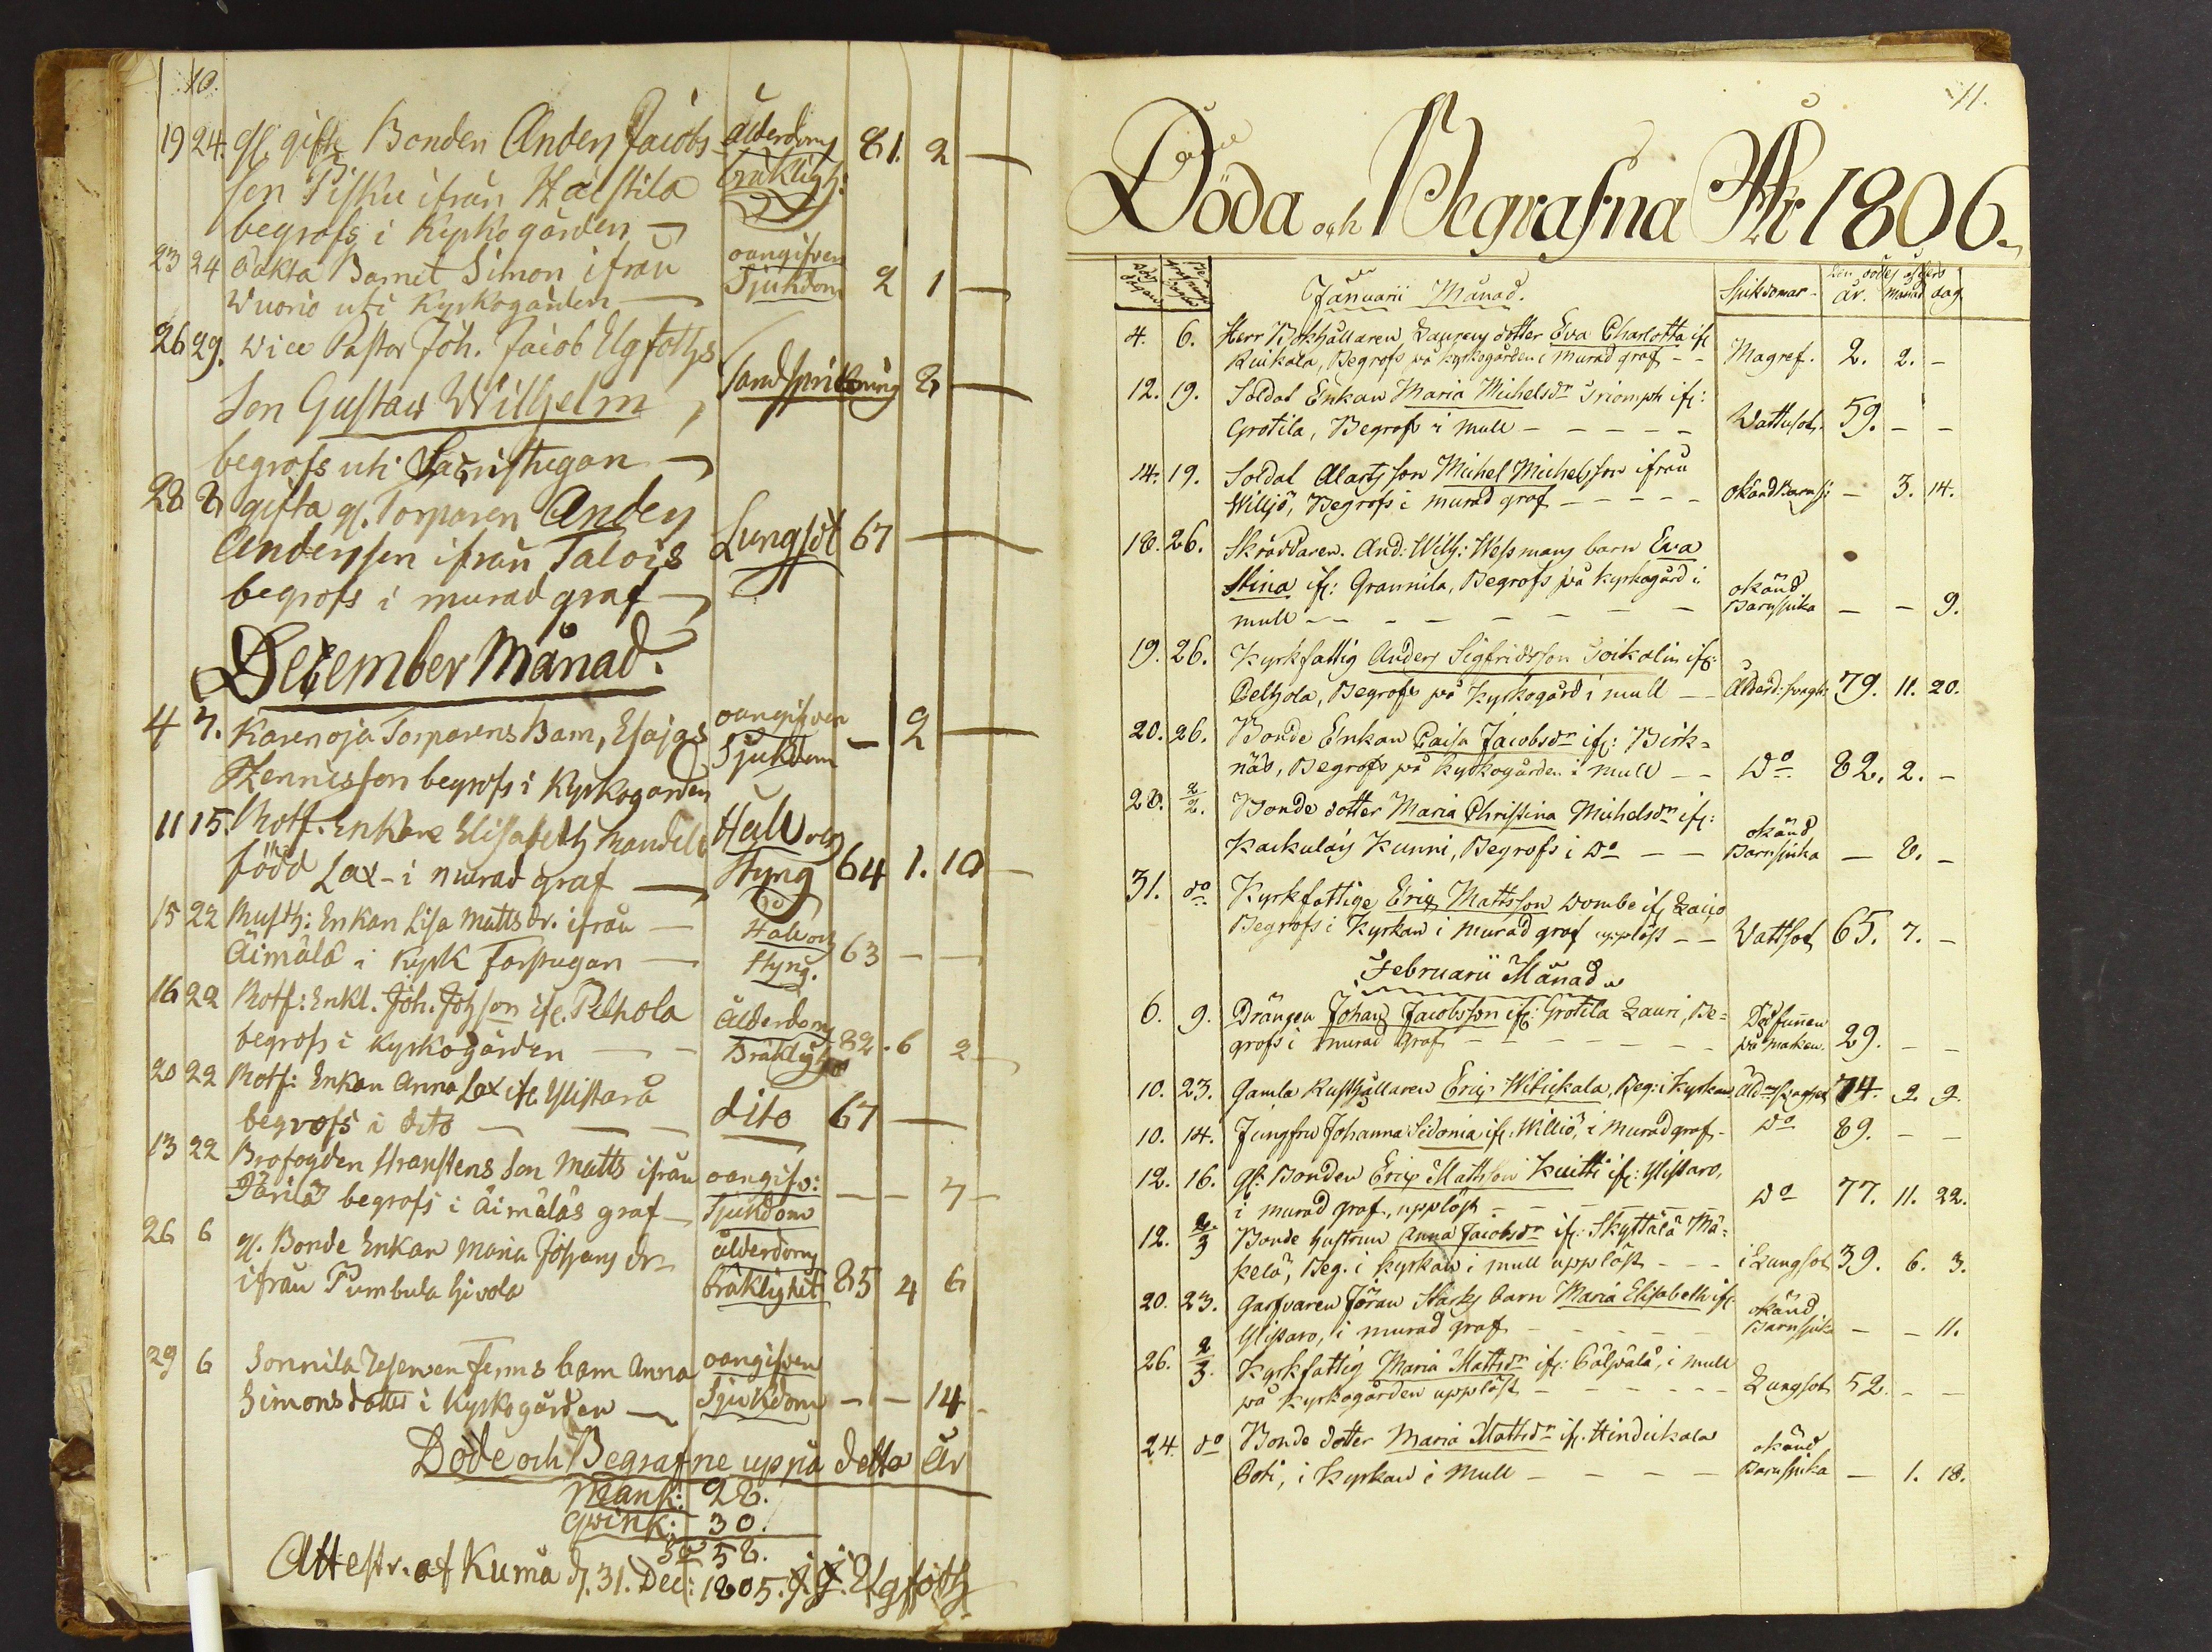 10.
19 24. gl. gifte Bonden Anders Jacobs- ålderdoms 81. 2 —
son Piskū ifrån Haistila bräkligh:
begrofs i Kyrkogården —
23 24 oäkta Barnet Simon ifrån oangifven
Wuorio uti Kyrkogården — Sjukdom 2 1 —
26 29. Vice Pastor Joh. Jacob Elgfoths
Son Gustav Wilhelm, 8 —
begrofs uti Sacristugan —
28 8 gifta gl. Torparen Anders
Andersson ifrån Talois Lungsot 67 —
begrofs i murad graf —
December Månad.
4 7. Karenoja Torparens Barn, Esajas oangifven — 2 —
Hennisson begrofs i Kyrkogården Sjukdom
11 15. Rotf. Enkan Elisabeth Mandell Håll och
född Lax - i murad graf — Styng 64 1. 10 —
15 22 Rusth: Enkan Lisa Mattsdr. ifrån — Håll och
Äimälä i Kyrk Farstugan — Styng. 63 — —
16 22 Rotf: Enkl. Joh. Johsson ifr. Pelhola Ålderdoms
begrofs i Kyrkogården — — Bräkligh 82. 6 2
20 22 Rotf: Enkan Anna Lax ifr. Ylistarå
begrofs i dito — — — dito 67 —
13 22 Brofogden Stranstens Son Matts ifrån oangifv:
Järilä begrofs i Äimäläs graf — Sjukdom — — 7 —
26 6 gl. Bonde Enkan Maria Johans dr. ålderdoms
ifrån Pumbula Hivola bräklighet 85 4 6
29 6 Sonnila Barn Anna oangifven
Simonsdotter i Kyrkogården — Sjukdom — — 14 -
Döde och Begrafne uppå detta År
Mank: 28.
Qwink: 30.
Sa 58.
Attestr. af Kumå d. 31. Dec: 1805. J. J. Elgfoth
11.
Döda och Begrafna År 1806.
Döds dagar Begrafnings dagar Januarii Månad. Sjukdomar. Den dödes ålders
år. månad dag
4. 6. Herr Bokhållaren Laurens dotter Eva Charlotta ifr
Kiukala, Begrofs på kyrkogården i murad graf - - Magref. 2. 2. -
12. 19. Soldat Enkan Maria Michelsdr Triomph ifr:
Grotila, Begrofs i mull - - - - - Wattusot. 59. - -
14. 19. Soldat Alarts son Michel Michelsson ifrån
Williö, Begrofs i murad graf - - - - - okänd Barnsj: - 3. 14.
18. 26. Skräddaren And: Wilh: Wessmans barn Eva
Stina ifr: Grannila, Begrofs på kyrkogård i okänd
mull - - - - - - - Barnsjuka - - 9.
19. 26. Kyrkfattig Anders Sigfridsson Toikalin ifr:
Pelhola, Begrofs på Kyrkogård i mull - - Ålderd: svagh: 79. 11. 20.
20. 26. Bonde Enkan Caisa Jacobsdr ifr: Birk=
näs, Begrofs på Kyrkogården i mull - - Do 82. 2. -
28. 2/2. Bonde dotter Maria Christina Michelsdr ifr: okänd
Kackulais Kunni, Begrofs i Do - - Barnsjuka - 8. -
31. do Kyrkfattige Eric Mattsson Wombe ifr Laijo
Begrofs i Kyrkan i murad graf upplöst - - Wattsot 65. 7. -
Februarii Månad
6. 9. Drängen Johan Jacobsson ifr: Grotila Lauri, Be= Död funnen
grofs i murad Graf - - - - - - - på marken. 29. - -
10. 23. Gamla Rusthållaren Eric Witickala, Beg: i Kyrkan 74. 2. 9.
10. 14. Jungfru Johanna Sidonia ifr: Williö, i Murad graf - Do 89. - -
12. 16. gl: Bonden Eric Mathson Knitti ifr: Ylistaro,
i murad graf, upplöst - - - - - Do 77. 11. 22.
12. 2/3 Bonde Hustrun Anna Jacobsdr ifr: Skyttälä Mä=
kelä, Beg. i kyrkan i mull upplöst - - - i Lungsot 39. 6. 3.
20. 23. Garfvaren Jöran Starks barn Maria Elisabeth ifr okänd
Ylistaro, i murad graf - - - - - Barnsjuk: - - 11.
26. 2/3. Kyrkfattig Maria Mattsdr ifr: i mull
på Kyrkogården upplöst - - - - - - Lungsot 52. - -
24. do Bonde dotter Maria Mattsdr ifr. Hindickala okänd
i Kyrkan i Mull - - - - Barnsjuka - 1. 18.